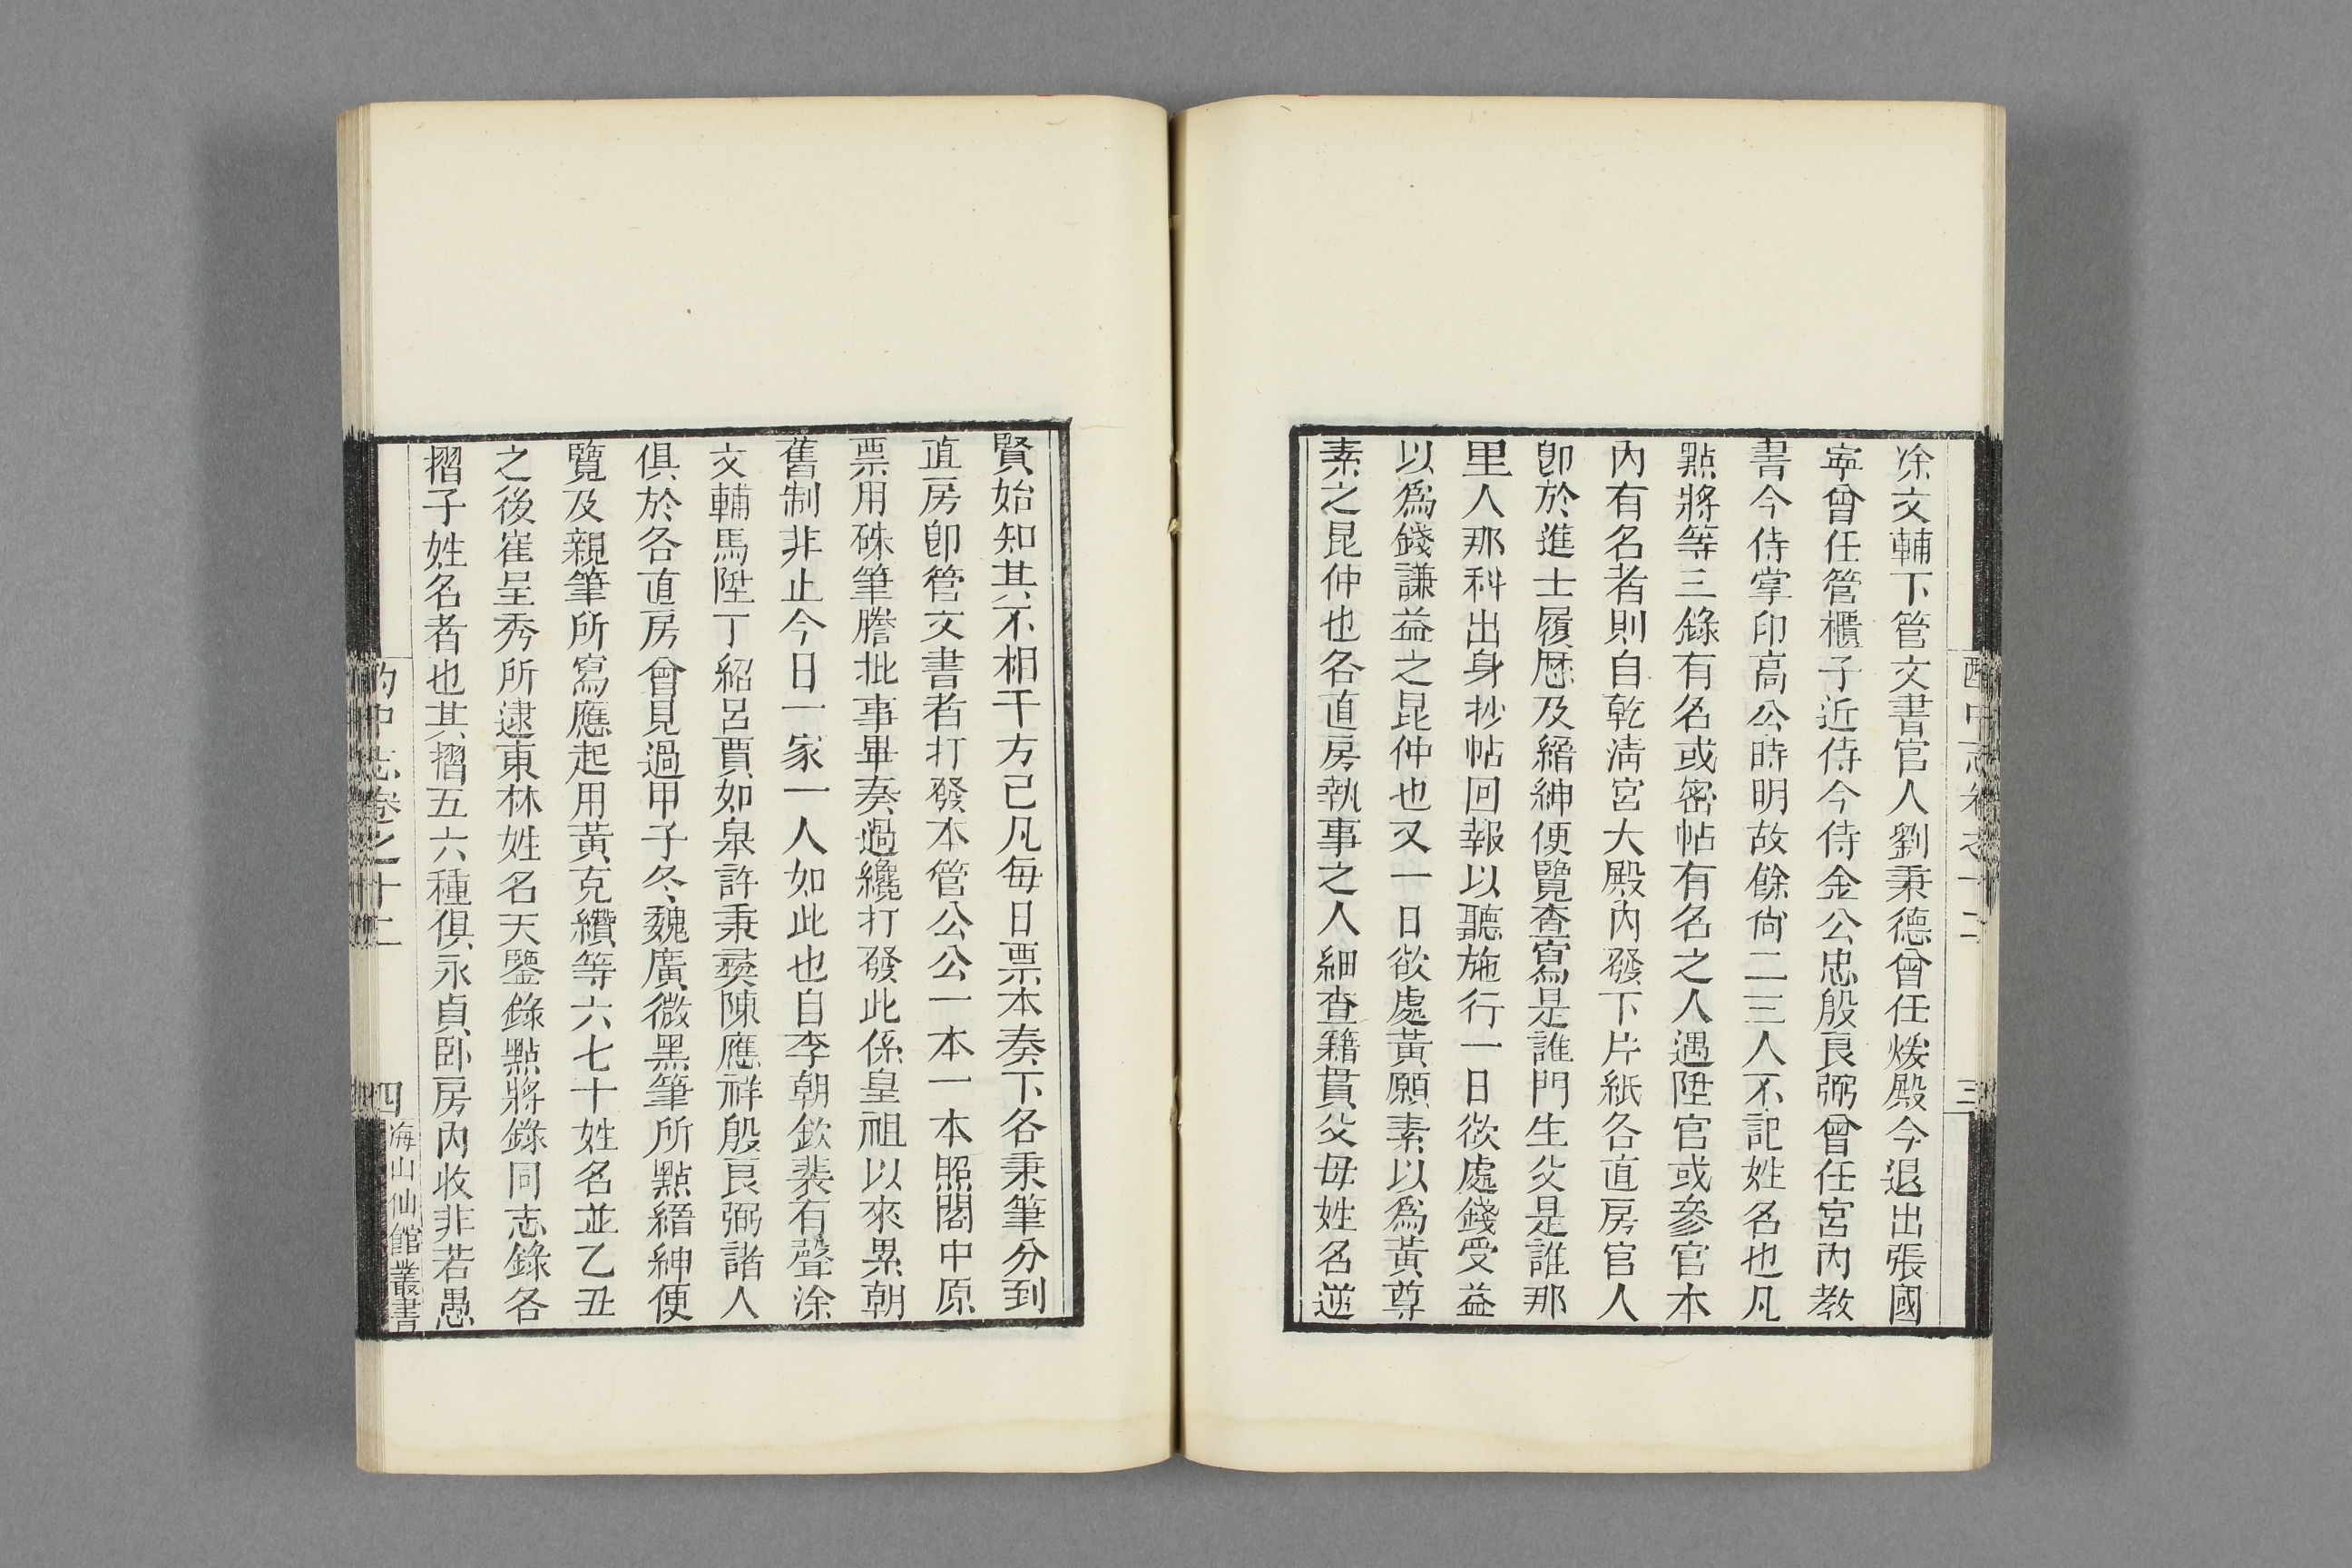 涂文輔下管文書官人劉秉德曾任煖殿今退出張國
寧曾任管櫃子近侍今侍金公忠殷良弼曾任宮內教
書今侍掌印高公時明故餘尙二三人不記姓名也凡
點將等三錄有名或密帖有名之人遇陞官或參官本
內有名者則自乾淸宮大殿內發下片紙各直房官人
卽於進士履歷及縉紳便覽查寫是誰門生父是誰那
里人那科出身抄帖回報以聽施行一日欲處錢受益
以爲錢謙益之昆仲也又一日欲處黃願素以爲黃尊
素之昆仲也各直房執事之人細查籍貫父母姓名逆
酌中志卷之十二
三
賢始知其不相干方已凡每日票本奏下各秉筆分到
直房卽管文書者打發本管公公一本一本照閣中原
票用硃筆謄批事畢奏過纔打發此係皇祖以來累朝
舊制非止今日一家一人如此也自李朝欽裴有聲涂
文輔馬陞丁紹呂賈如臯許秉彛陳應祥殷良弼諸人
俱於各直房曾見過甲子冬魏廣微黑筆所點縉紳便
覽及親筆所寫應起用黃克纘等六七十姓名並乙丑
之後崔呈秀所逮東林姓名天鑒錄點將錄同志錄各
摺子姓名者也其摺五六種俱永貞卧房內收非若愚
酌中志卷之十二
四
海山仙館叢書